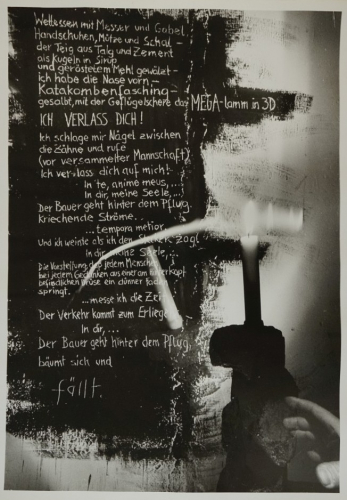 Wettessen mit Messer und Gabel
Handschuhen, Mütze und Schal –
der Teig aus Talg und Zement
als Kugeln in Sirup
und geröstetem Mehl gewälzt –
ich habe die Nase vorn –
Katakombenfasching –
gesalbt, mit der Geflügelschere das MEGA-lamm in 3D
ICH VERLASS DICH!
Ich schlage mir Nägel zwischen
die Zähne und rufe
(vor versammelter Mannschaft)
Ich verlass dich auf mich!
In te, anime meus,...
In dir, meine Seele,...
Der Bauer geht hinter dem Pflug.
Kriechende Ströme.
...tempora metior
Und ich weinte als ich den zog
In dir, meine Seele,...
Die Vorstellung, daß jedem Menschen
bei jedem Gedanken aus einer am
befindlichen Drüse ein dünner
springt.
...messe ich die Zeit
Der Verkehr kommt zum Erliegen
In dir,...
Der Bauer geht hinter dem Pflug,
bäumt sich und
fällt.